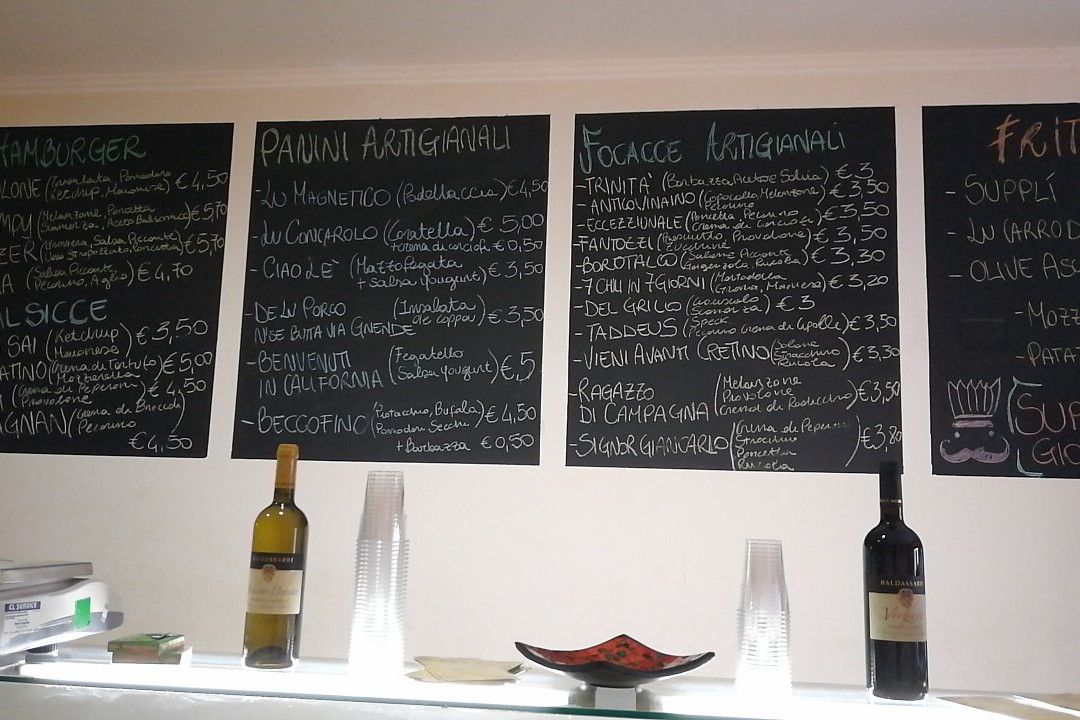 HAMBURGER
LONE (Insalata, Pomodoro
Ketchup, Maionese) € 4,50
MPY (Melanzane, Pancetta
Scamorza, Aceto Balsamico) € 5,70
ZER Salsa Piccante € 5,70
A (Salsa Piccante
Pecorino, Aglio) € 4,70
ALSICCE
SAI (Ketchup
Maionese) € 3,50
ATINO (Crema di Tartufo
Mozzarella) € 5,00
(Crema di Peperoni
Provolone) € 4,50
GNAN (Crema di Broccoli
Pecorino)
€ 4,50
PANINI ARTIGIANALI
- LU MAGNETICO (Padellaccia) € 4,50
- LU CONCAROLO (Coratella) € 5,00
+ crema di carciofi € 0,50
- CIAOLÈ (Mazzafegata
+ salsa yougurt) € 3,50
- DE LU PORCO (Insalata
de coppa) € 3,50
N'SE BUTTA VIA GNENDE
- BENVENUTI (Fegatello
IN CALIFORNIA Salsa yougurt) € 5
- BECCOFINO (Pistacchio, Bufala
Pomodori Secchi) € 4,50
+ Barbazza € 0,50
FOCACCE ARTIGIANALI
- TRINITÀ (Barbazza, Aceto e Salvia) € 3
- ANTICOVINAINO (Capocollo, Melanzane
Pecorino) € 3,50
- ECCEZZIUNALE (Pancetta, Pecorino
Crema di Carciofi) € 3,50
- FANTOZZI (Prosciutto, Provolone
Zucchine) € 3,50
- BOROTALCO (Salame Piccante
Gorgonzola, Rucola) € 3,30
- 7 CHILI IN 7 GIORNI (Mortadella
Grana, Maionese) € 3,20
- DEL GRILLO (Ciauscolo
Scamorza) € 3
- TADDEUS (Speck
Pecorino Crema di Cipolle) € 3,50
- VIENI AVANTI CRETINO (Salame
Stracchino
Rucola) € 3,30
- RAGAZZO (Melanzane
Provolone
DI CAMPAGNA Crema di Radicchio) € 3,50
- SIGNOR GIANCARLO (Crema di Peperoni
Stracchino
Pancetta
Rucola) € 3,80
FRIT
- SUPPLÍ
- LU CARROD
- OLIVE ASC
- MOZZ
- PATAT
SUP
GIO
CL SERVICE
BALDASSARRI
BALDASSARRI